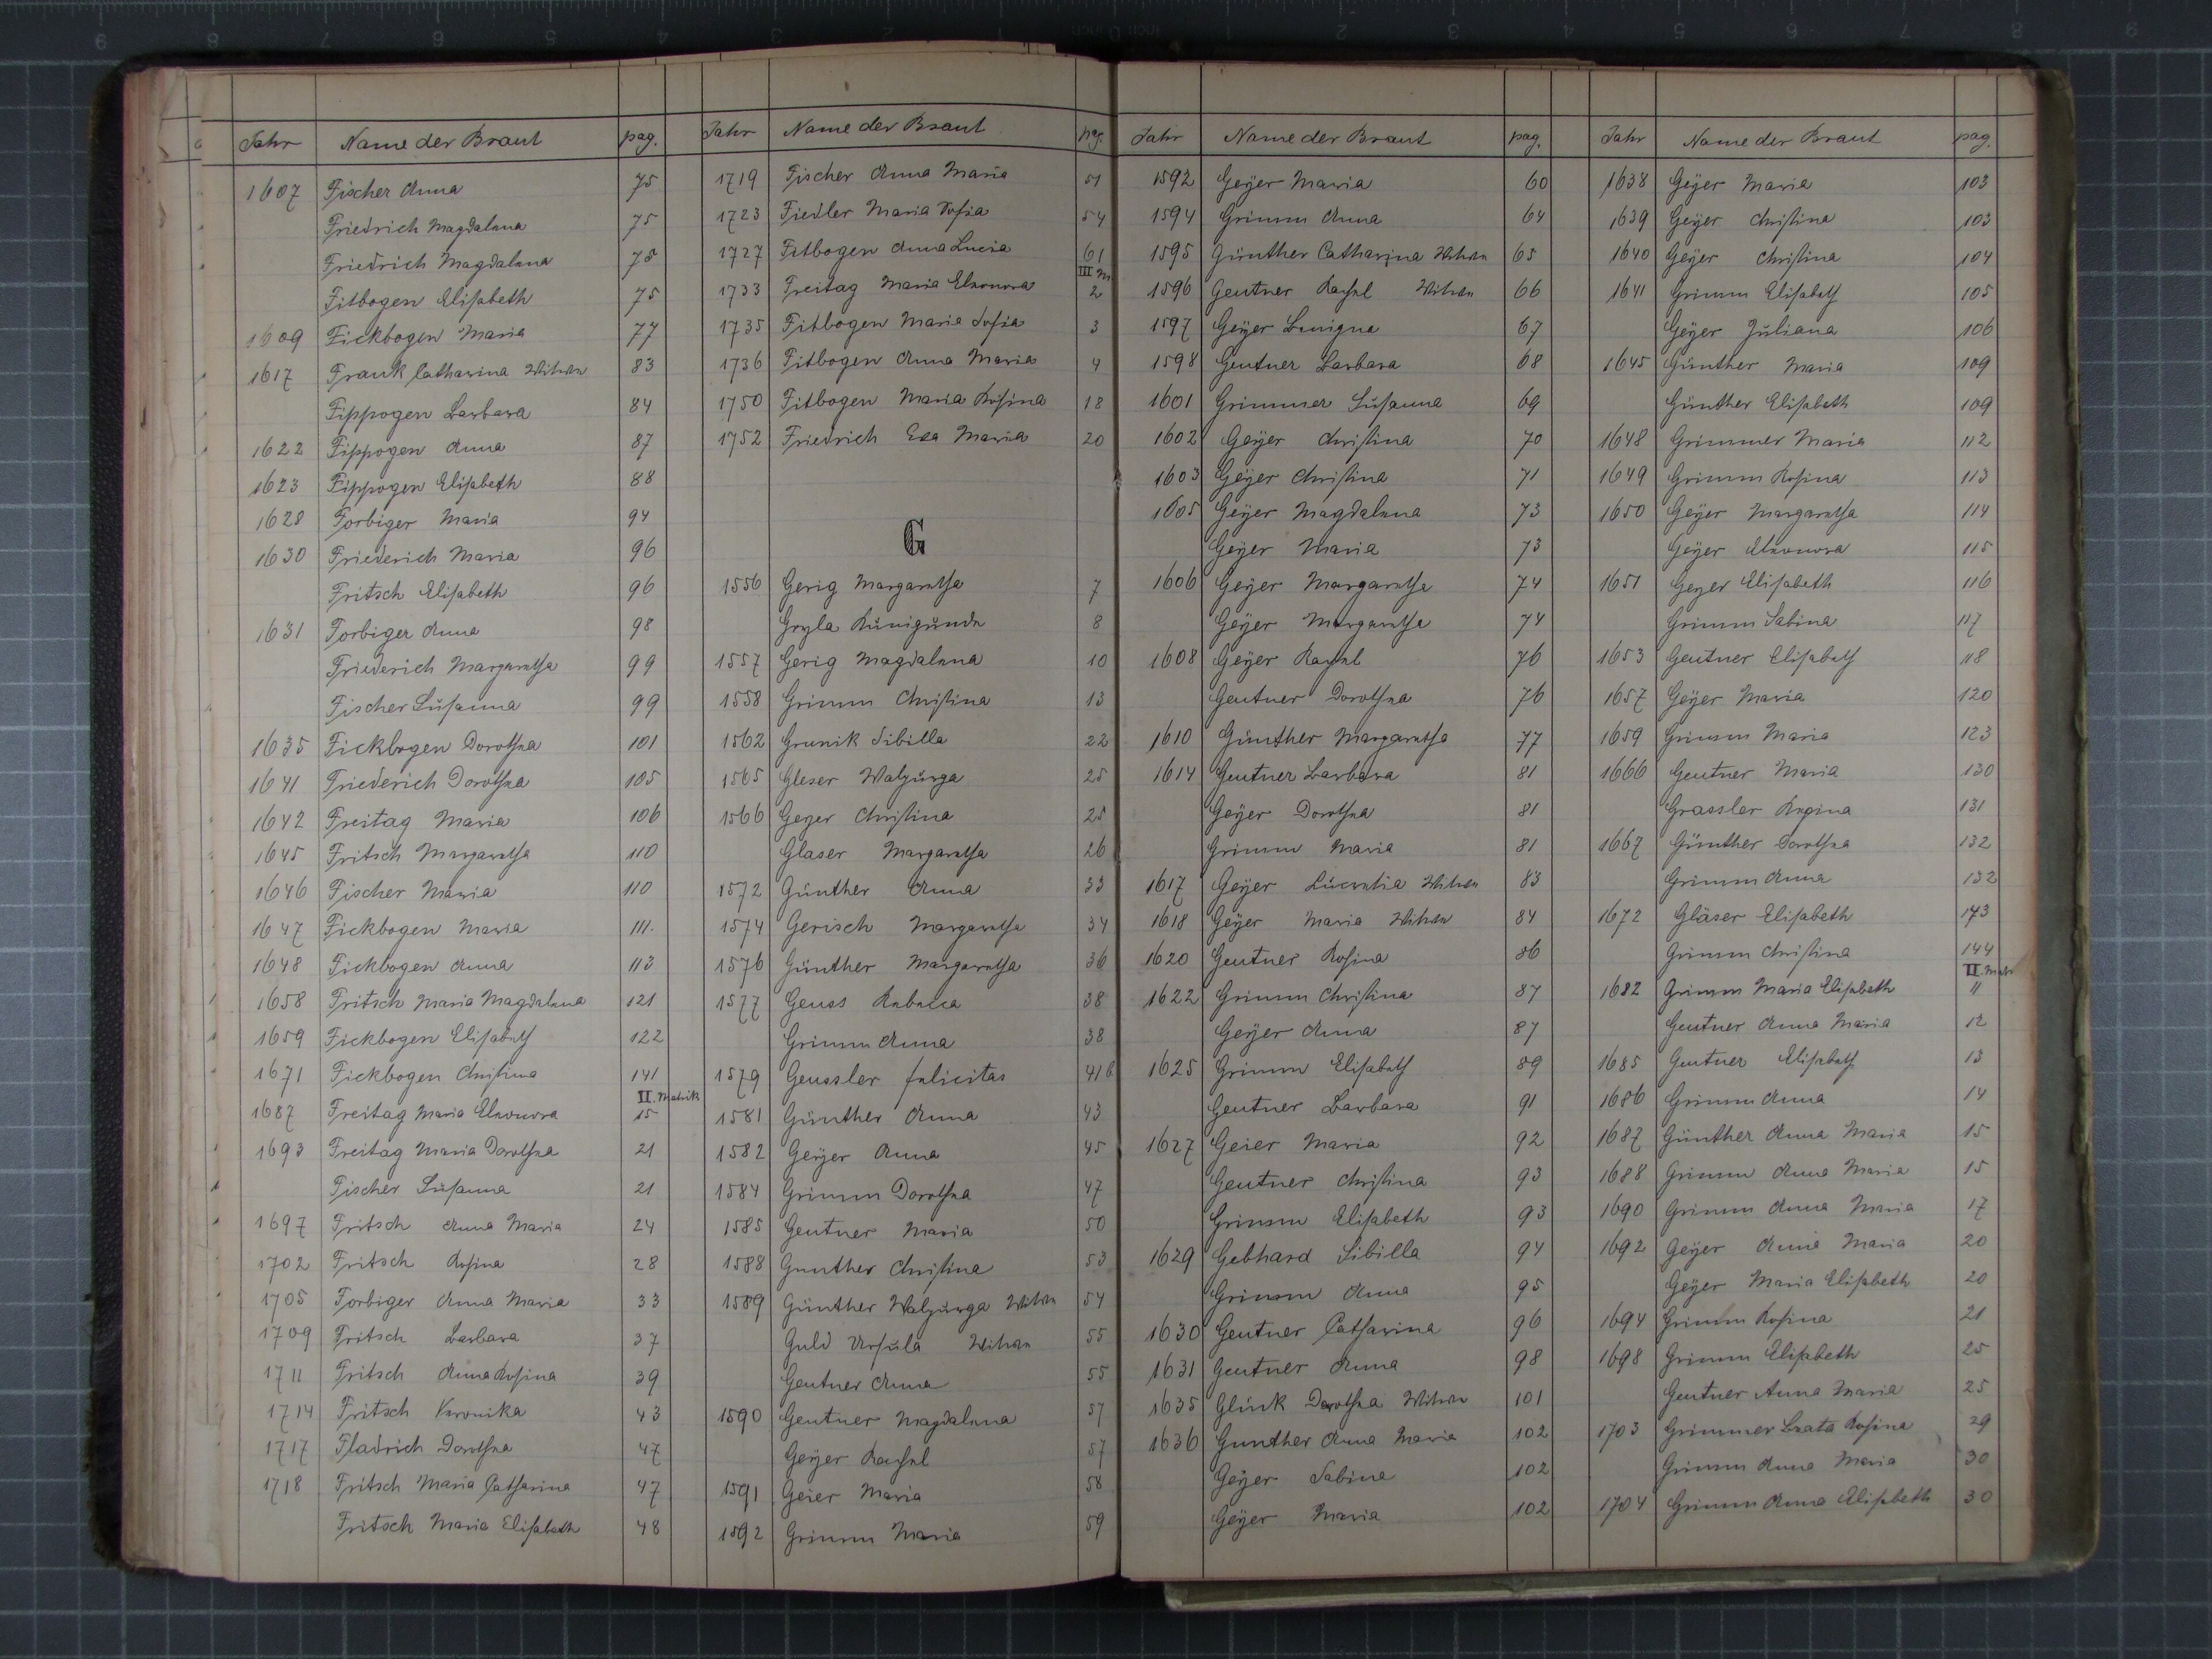 Jahr Name der Braut pag.
1607 Fischer Anna 75
Friedrich Magdalena 75
Friedrich Magdalena 75
Fitbogen Elisabeth 75
1609 Fickbogen Maria 77
1617 Frank Catharina Witwe 83
Fippogen Barbara 84
1622 Fippogen Anna 87
1623 Fippogen Elisabeth 88
1628 Forbiger Maria 94
1630 Friederich Maria 96
Fritsch Elisabeth 96
1631 Forbiger Anna 98
Friederich Margaretha 99
Fischer Susanna 99
1635 Fickbogen Dorothea 101
1641 Friederich Dorothea 105
1642 Freitag Maria 106
1645 Fritsch Margaretha 110
1646 Fischer Maria 110
1647 Fickbogen Maria 111.
1648 Fickbogen Anna 113
1658 Fritsch Maria Magdalena 121
1659 Fickbogen Elisabeth 122
1671 Fickbogen Christina 141
II. Matrik
1687 Freitag Maria Eleonora 15
1693 Freitag Maria Dorothea 21
Fischer Susanna 21
1697 Fritsch Anna Maria 24
1702 Fritsch Rosina 28
1705 Forbiger Anna Maria 33
1709 Fritsch Barbara 37
1711 Fritsch Anna Rosina 39
1714 Fritsch Veronika 43
1717 Fladrich Dorothea 47
1718 Fritsch Maria Catharina 47
Fritsch Maria Elisabeth 48
Jahr Name der Braut pag.
1719 Fischer Anna Maria 51
1723 Fiedler Maria Sofia 54
1727 Fitbogen Anna Lucia 61
III M
1733 Freitag Maria Eleonora 2
1735 Fitbogen Maria Sofia 3
1736 Fitbogen Anna Maria 4
1750 Fitbogen Maria Rosina 18
1752 Friedrich Eva Maria 20
G
1556 Gerig Margaretha 7
Gryla Kunigunde 8
1557 Gerig Magdalena 10
1558 Grimm Christina 13
1562 Grunik Sibilla 22
1565 Gleser Walpurga 25
1566 Geyer Christina 25
Glaser Margaretha 26
1572 Günther Anna 33
1574 Gerisch Margaretha 34
1576 Günther Margaretha 36
1577 Geuss Rebecca 38
Grimm Anna 38
1579 Geussler Felicitas 41b
1581 Günther Anna 43
1582 Geÿer Anna 45
1584 Grimm Dorothea 47
1585 Geutner Maria 50
1588 Gunther Christina 53
1589 Günther Walpurga Witwe 54
Guld Ursula Witwe 55
Geutner Anna 55
1590 Geutner Magdalena 57
Geÿer Rachel 57
1591 Geier Maria 58
1592 Grimm Maria 59
Jahr Name der Braut pag.
1592 Geÿer Maria 60
1594 Grimm Anna 64
1595 Günther Catharina Witwe 65
1596 Geutner Rachel Witwe 66
1597 Geÿer Benigna 67
1598 Geutner Barbara 68
1601 Grimmer Susanna 69
1602 Geÿer Christina 70
1603 Geÿer Christina 71
1605 Geÿer Magdalena 73
Geÿer Maria 73
1606 Geÿer Margaretha 74
Geÿer Margaretha 74
1608 Geÿer Rachel 76
Geutner Dorothea 76
1610 Günther Margaretha 77
1614 Geutner Barbara 81
Geÿer Dorothea 81
Grimm Maria 81
1617 Geÿer Lucretia Witwe 83
1618 Geÿer Maria Witwe 84
1620 Geutner Rosina 86
1622 Grimm Christina 87
Geÿer Anna 87
1625 Grimm Elisabeth 89
Geutner Barbara 91
1627 Geier Maria 92
Geutner Christina 93
Grimm Elisabeth 93
1629 Gebhard Sibilla 94
Grimm Anna 95
1630 Geutner Catharina 96
1631 Geutner Anna 98
1635 Glück Dorothea Witwe 101
1636 Gunther Anna Maria 102
Geÿer Sabine 102
Geÿer Maria 102
Jahr Name der Braut pag.
1638 Geÿer Maria 103
1639 Geÿer Christina 103
1640 Geÿer Christina 104
1641 Grimm Elisabeth 105
Geÿer Juliana 106
1645 Günther Maria 109
Günther Elisabeth 109
1648 Grimmer Maria 112
1649 Grimm Rosina 113
1650 Geÿer Margaretha 114
Geÿer Eleonora 115
1651 Geyer Elisabeth 116
Grimm Sabina 117
1653 Geutner Elisabeth 118
1657 Geÿer Maria 120
1659 Grimm Maria 123
1666 Geutner Maria 130
Grassler Regina 131
1667 Günther Dorothea 132
Grimm Anna 132
1672 Gläser Elisabeth 143
Grimm Christina 144
II. Matr
1682 Grimm Maria Elisabeth 11
Geutner Anna Maria 12
1685 Geutner Elisabeth 13
1686 Grimm Anna 14
1687 Günther Anna Maria 15
1688 Grimm Anna Maria 15
1690 Grimm Anna Maria 17
1692 Geÿer Anna Maria 20
Geÿer Maria Elisabeth 20
1694 Grimm Rosina 21
1698 Grimm Elisabeth 25
Geutner Anna Maria 25
1703 Grimmer Beata Rosina 29
Grimm Anna Maria 30
1704 Grimm Anna Elisabeth 30